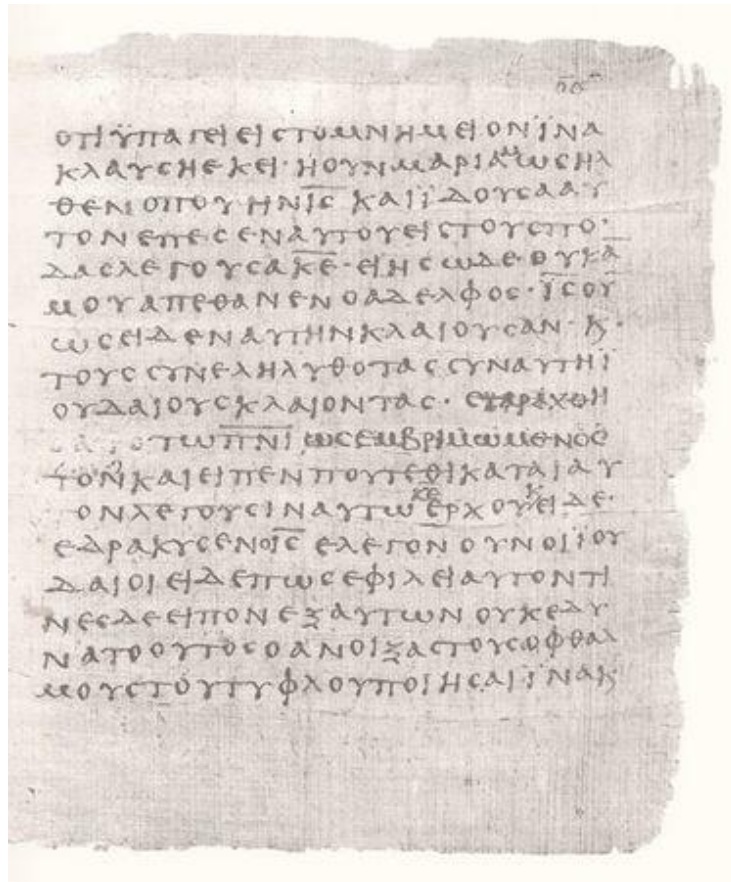 ΟΤΙΫΠΑΓΕΙΕΙϹΤΟΜΝΗΜΕΙΟΝΪΝΑ
ΚΛΑΥϹΗΕΚΕΙ·ΗΟΥΝΜΑΡΙΑΜΩϹΗΛ
ΘΕΝΟΠΟΥΗΝΙ̅Ϲ̅ ΚΑΙΪΔΟΥϹΑΑΥ
ΤΟΝΕΠΕϹΕΝΑΥΤΟΥΕΙϹΤΟΥϹΠΟ·
ΔΑϹΛΕΓΟΥϹΑΚ̅Ε̅·ΕΙΗϹΩΔΕΟΥΚΑ̅
ΜΟΥΑΠΕΘΑΝΕΝΟΑΔΕΛΦΟϹ·Ι̅Ϲ̅ΟΥ̅
ΩϹΕΙΔΕΝΑΥΤΗΝΚΛΑΙΟΥϹΑΝ·Κ·
ΤΟΥϹϹΥΝΕΛΗΛΥΘΟΤΑϹϹΥΝΑΥΤΗΪ
ΟΥΔΑΙΟΥϹΚΛΑΙΟΝΤΑϹ·ΕΤΑΡΑΧΘΗ
ΤΩΠ̅Ν̅Ι̅ΩϹΕΜΒΡΙΜΩΜΕΝΟϹ
ΤΟΝΚΑΙΕΙΠΕΝΠΟΥΤΕΘΙΚΑΤΑΙΑΥ
ΟΝΛΕΓΟΥϹΙΝΑΥΤΩΚ̅Ε̅ΕΡΧΟΥΚΕΙΔΕ·
ΕΔΡΑΚΥϹΕΝΟΙ̅Ϲ̅ ΕΛΕΓΟΝΟΥΝΟΙΪΟΥ
ΔΑΙΟΙΕΙΔΕΠΩϹΕΦΙΛΕΙΑΥΤΟΝΤΙ
ΝΕϹΔΕΕΙΠΟΝΕΞΑΥΤΩΝΟΥΚΕΔΥ
ΝΑΤΟΟΥΤΟϹΟΑΝΟΙΞΑϹΤΟΥϹΟΦΘΑΛ
ΜΟΥϹΤΟΥΤΥΦΛΟΥΠΟΙΗϹΑΙΪΝΑΚ